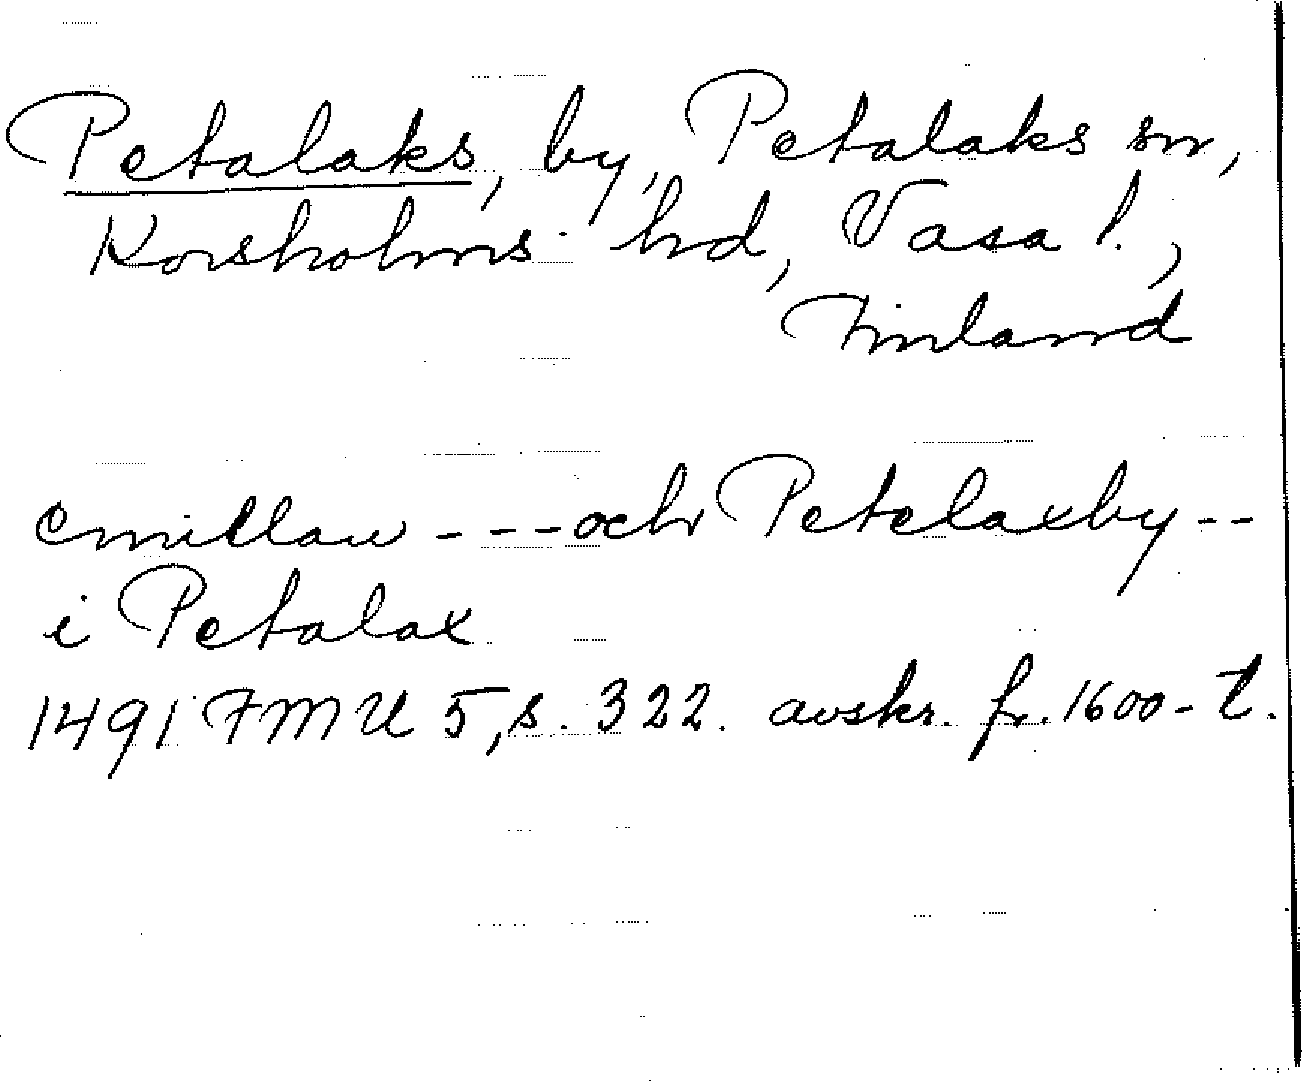 Petalaks, by, Petalaks sn,
Korsholms hd, Vasa l.,
Finland
emillaw - - - och Petelaxby - -
i Petalax
1491 FMU 5, s. 322. avskr. fr. 1600-t.